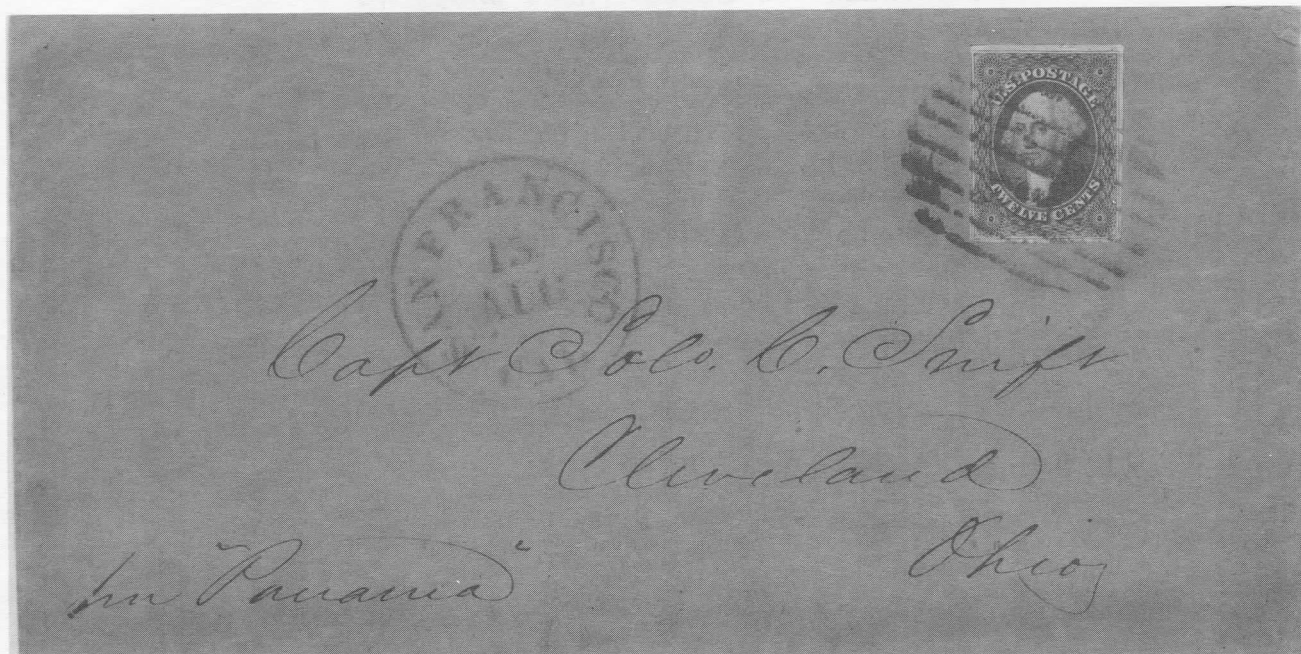 U.S. POSTAGE
TWELVE CENTS
SAN FRANCISCO
15
AUG
Capt Solo. C. Swift
Cleveland
Ohio
per "Panama"